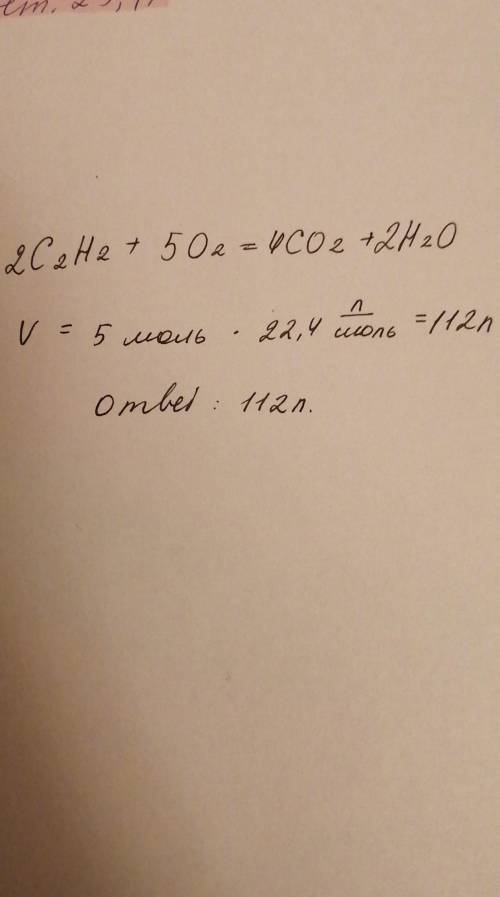 2C₂H₂ + 5O₂ = 4CO₂ + 2H₂O
V = 5 моль · 22,4 л/моль = 112л
Ответ: 112л.